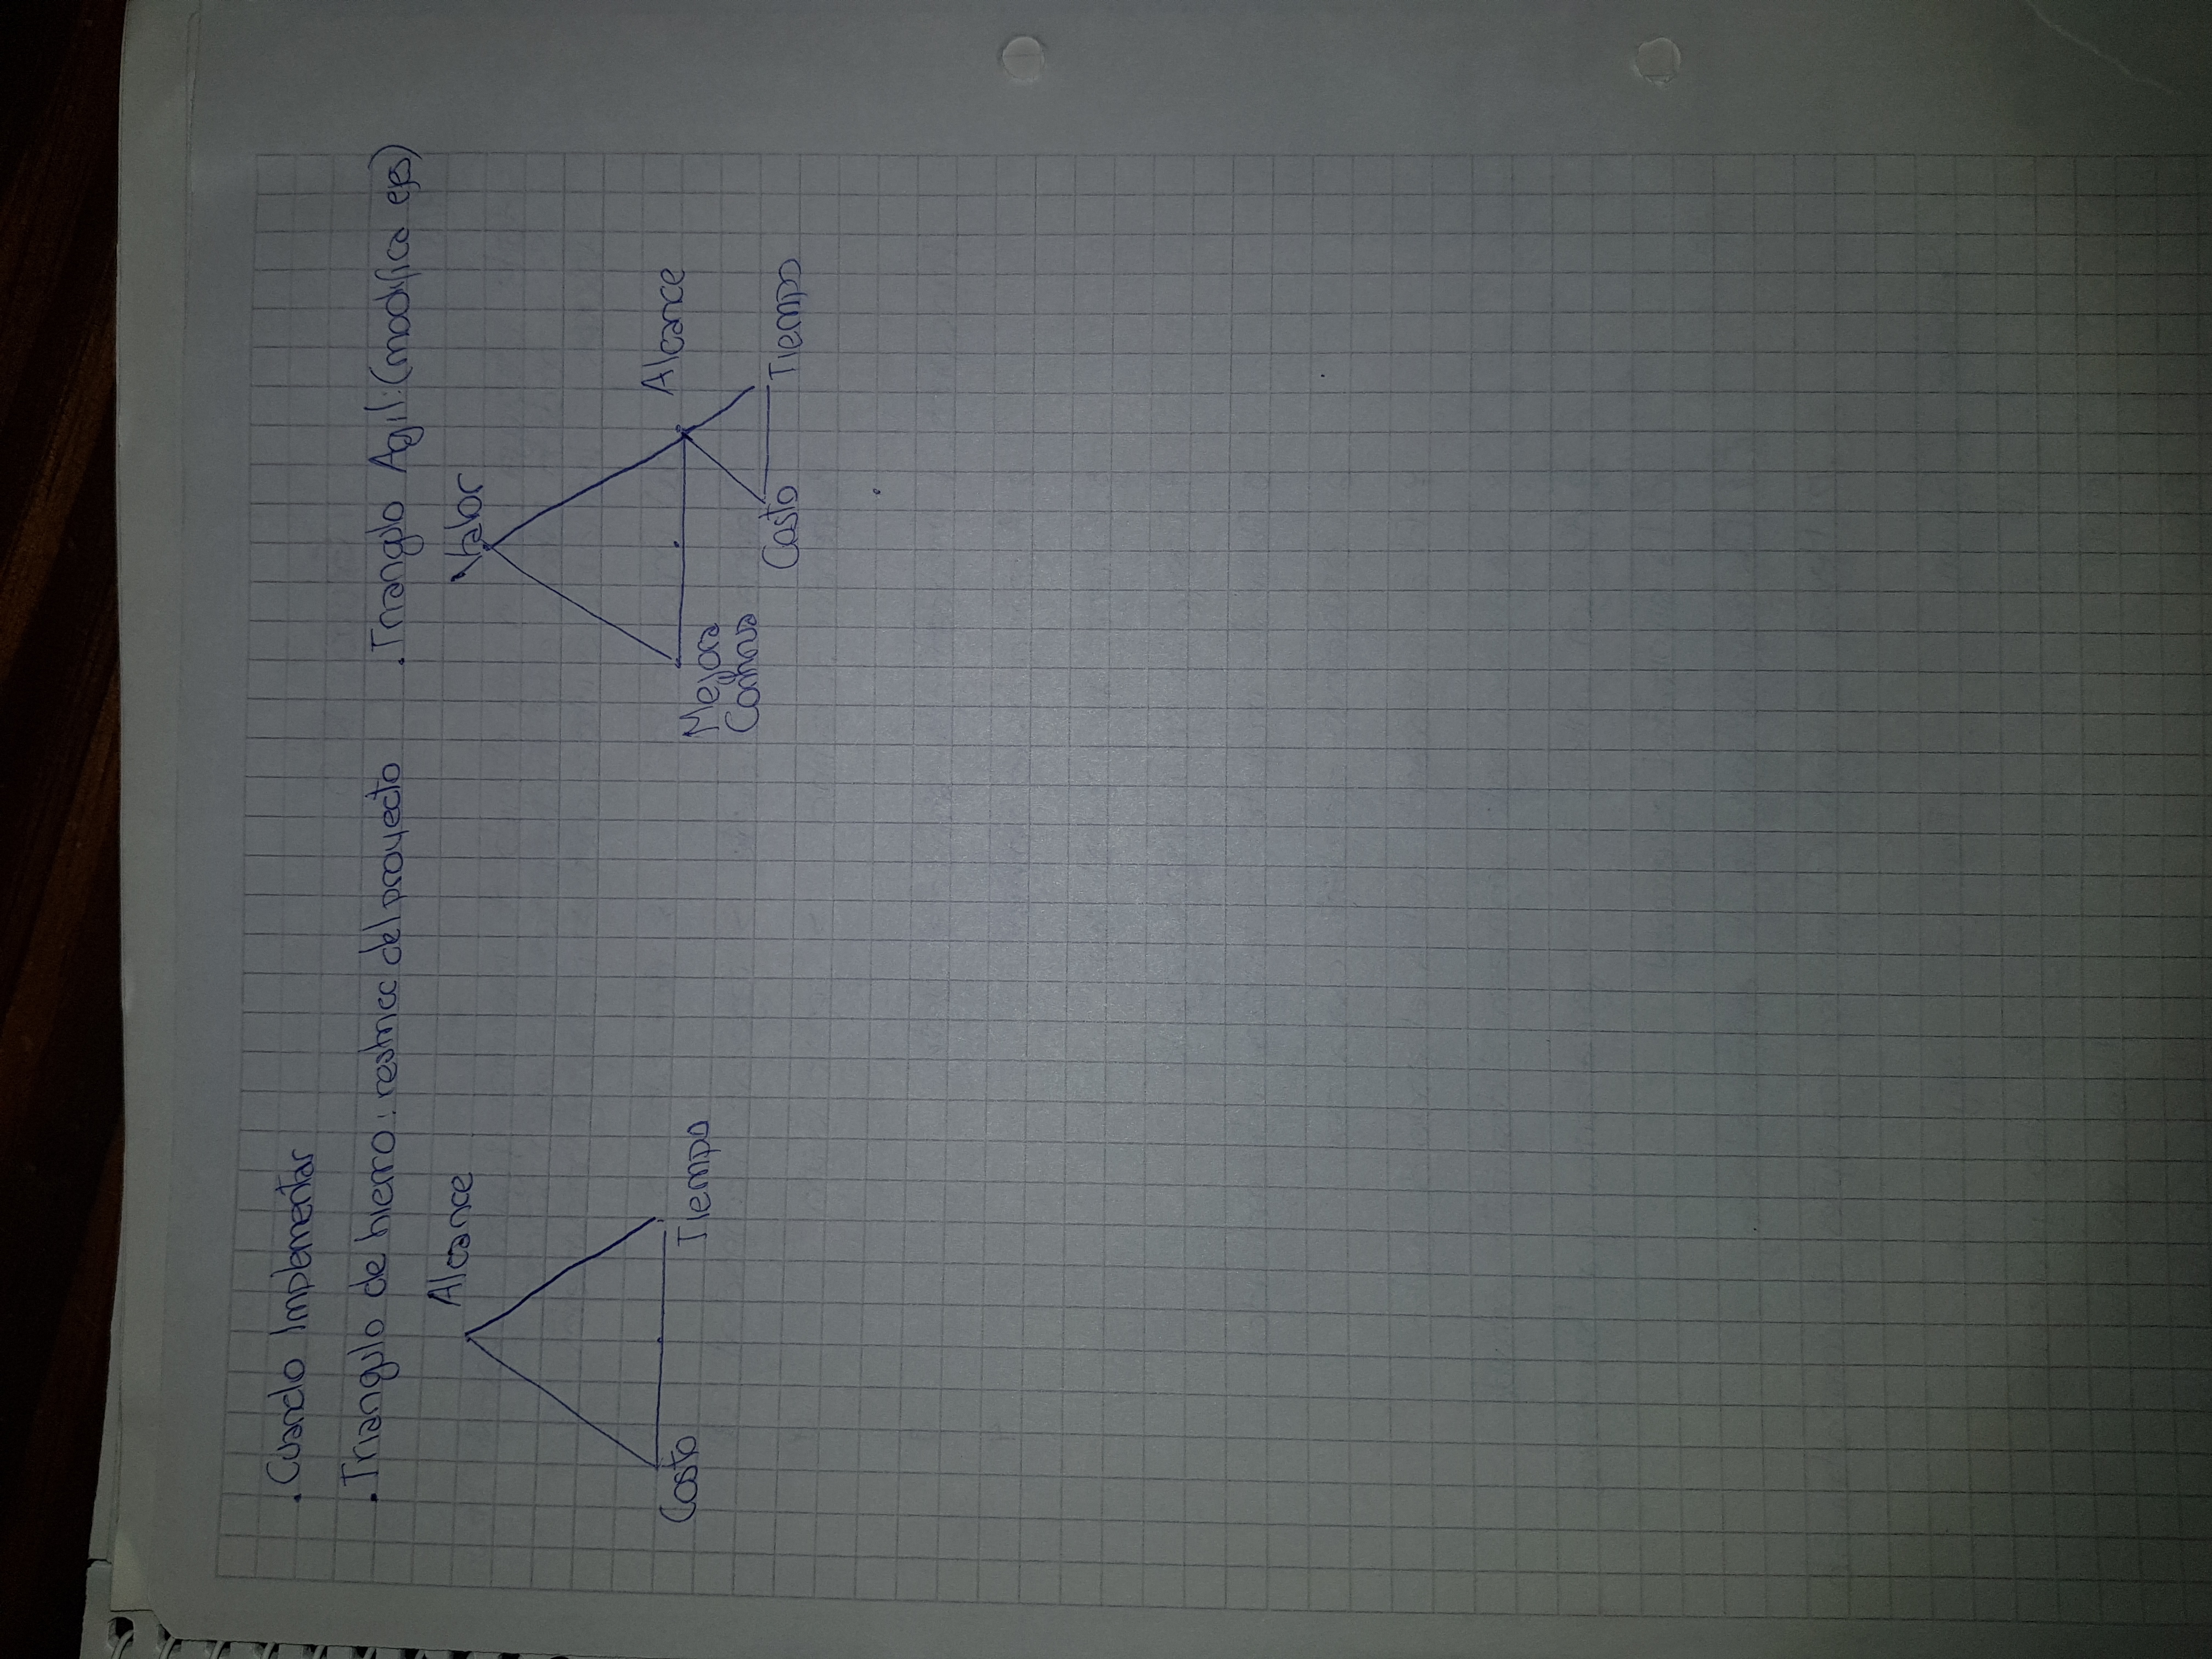 . Cuando Implementar
. Triangulo de hierro : restricc del proyecto
Alcance
Costo
Tiempo
. Triangulo Agil: (modifica ejes)
Valor
Mejora
Continua
Alcance
Costo
Tiempo